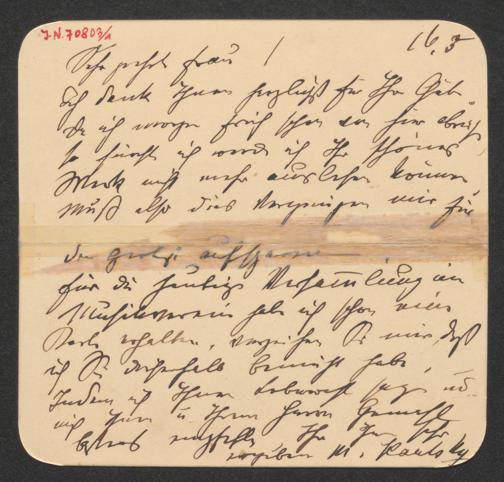 J.N. 70803/1
16.3
Sehr geehrte Frau!
Ich danke Ihnen herzlichst für Ihre Güte
da ich morgen früh schon von hier abreise,
so fürchte ich werde ich Ihr schönes
Werk nicht mehr auslesen können
muß also dies Vergnügen mir für
den aufsparen
für die heutige Versammlung im
Musikverein habe ich schon eine
Karte erhalten, verzeihen Sie mir, daß
ich Sie dieserhalb bemüht habe,
Indem ich Ihnen Lebewohl sage und
mich Ihnen u. Ihrem Herrn Gemahl
bestens empfehle Ihr Ihnen sehr
ergebener M. Kautsky